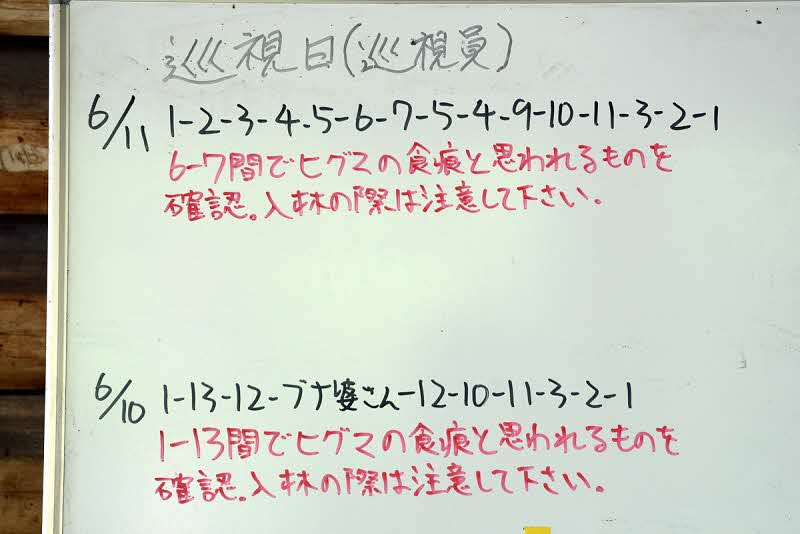 巡視日(巡視員)
6/11 1-2-3-4-5-6-7-5-4-9-10-11-3-2-1
6-7間でヒグマの食痕と思われるものを
確認。入林の際は注意して下さい。
6/10 1-13-12-ブナ婆さん-12-10-11-3-2-1
1-13間でヒグマの食痕と思われるものを
確認。入林の際は注意して下さい。